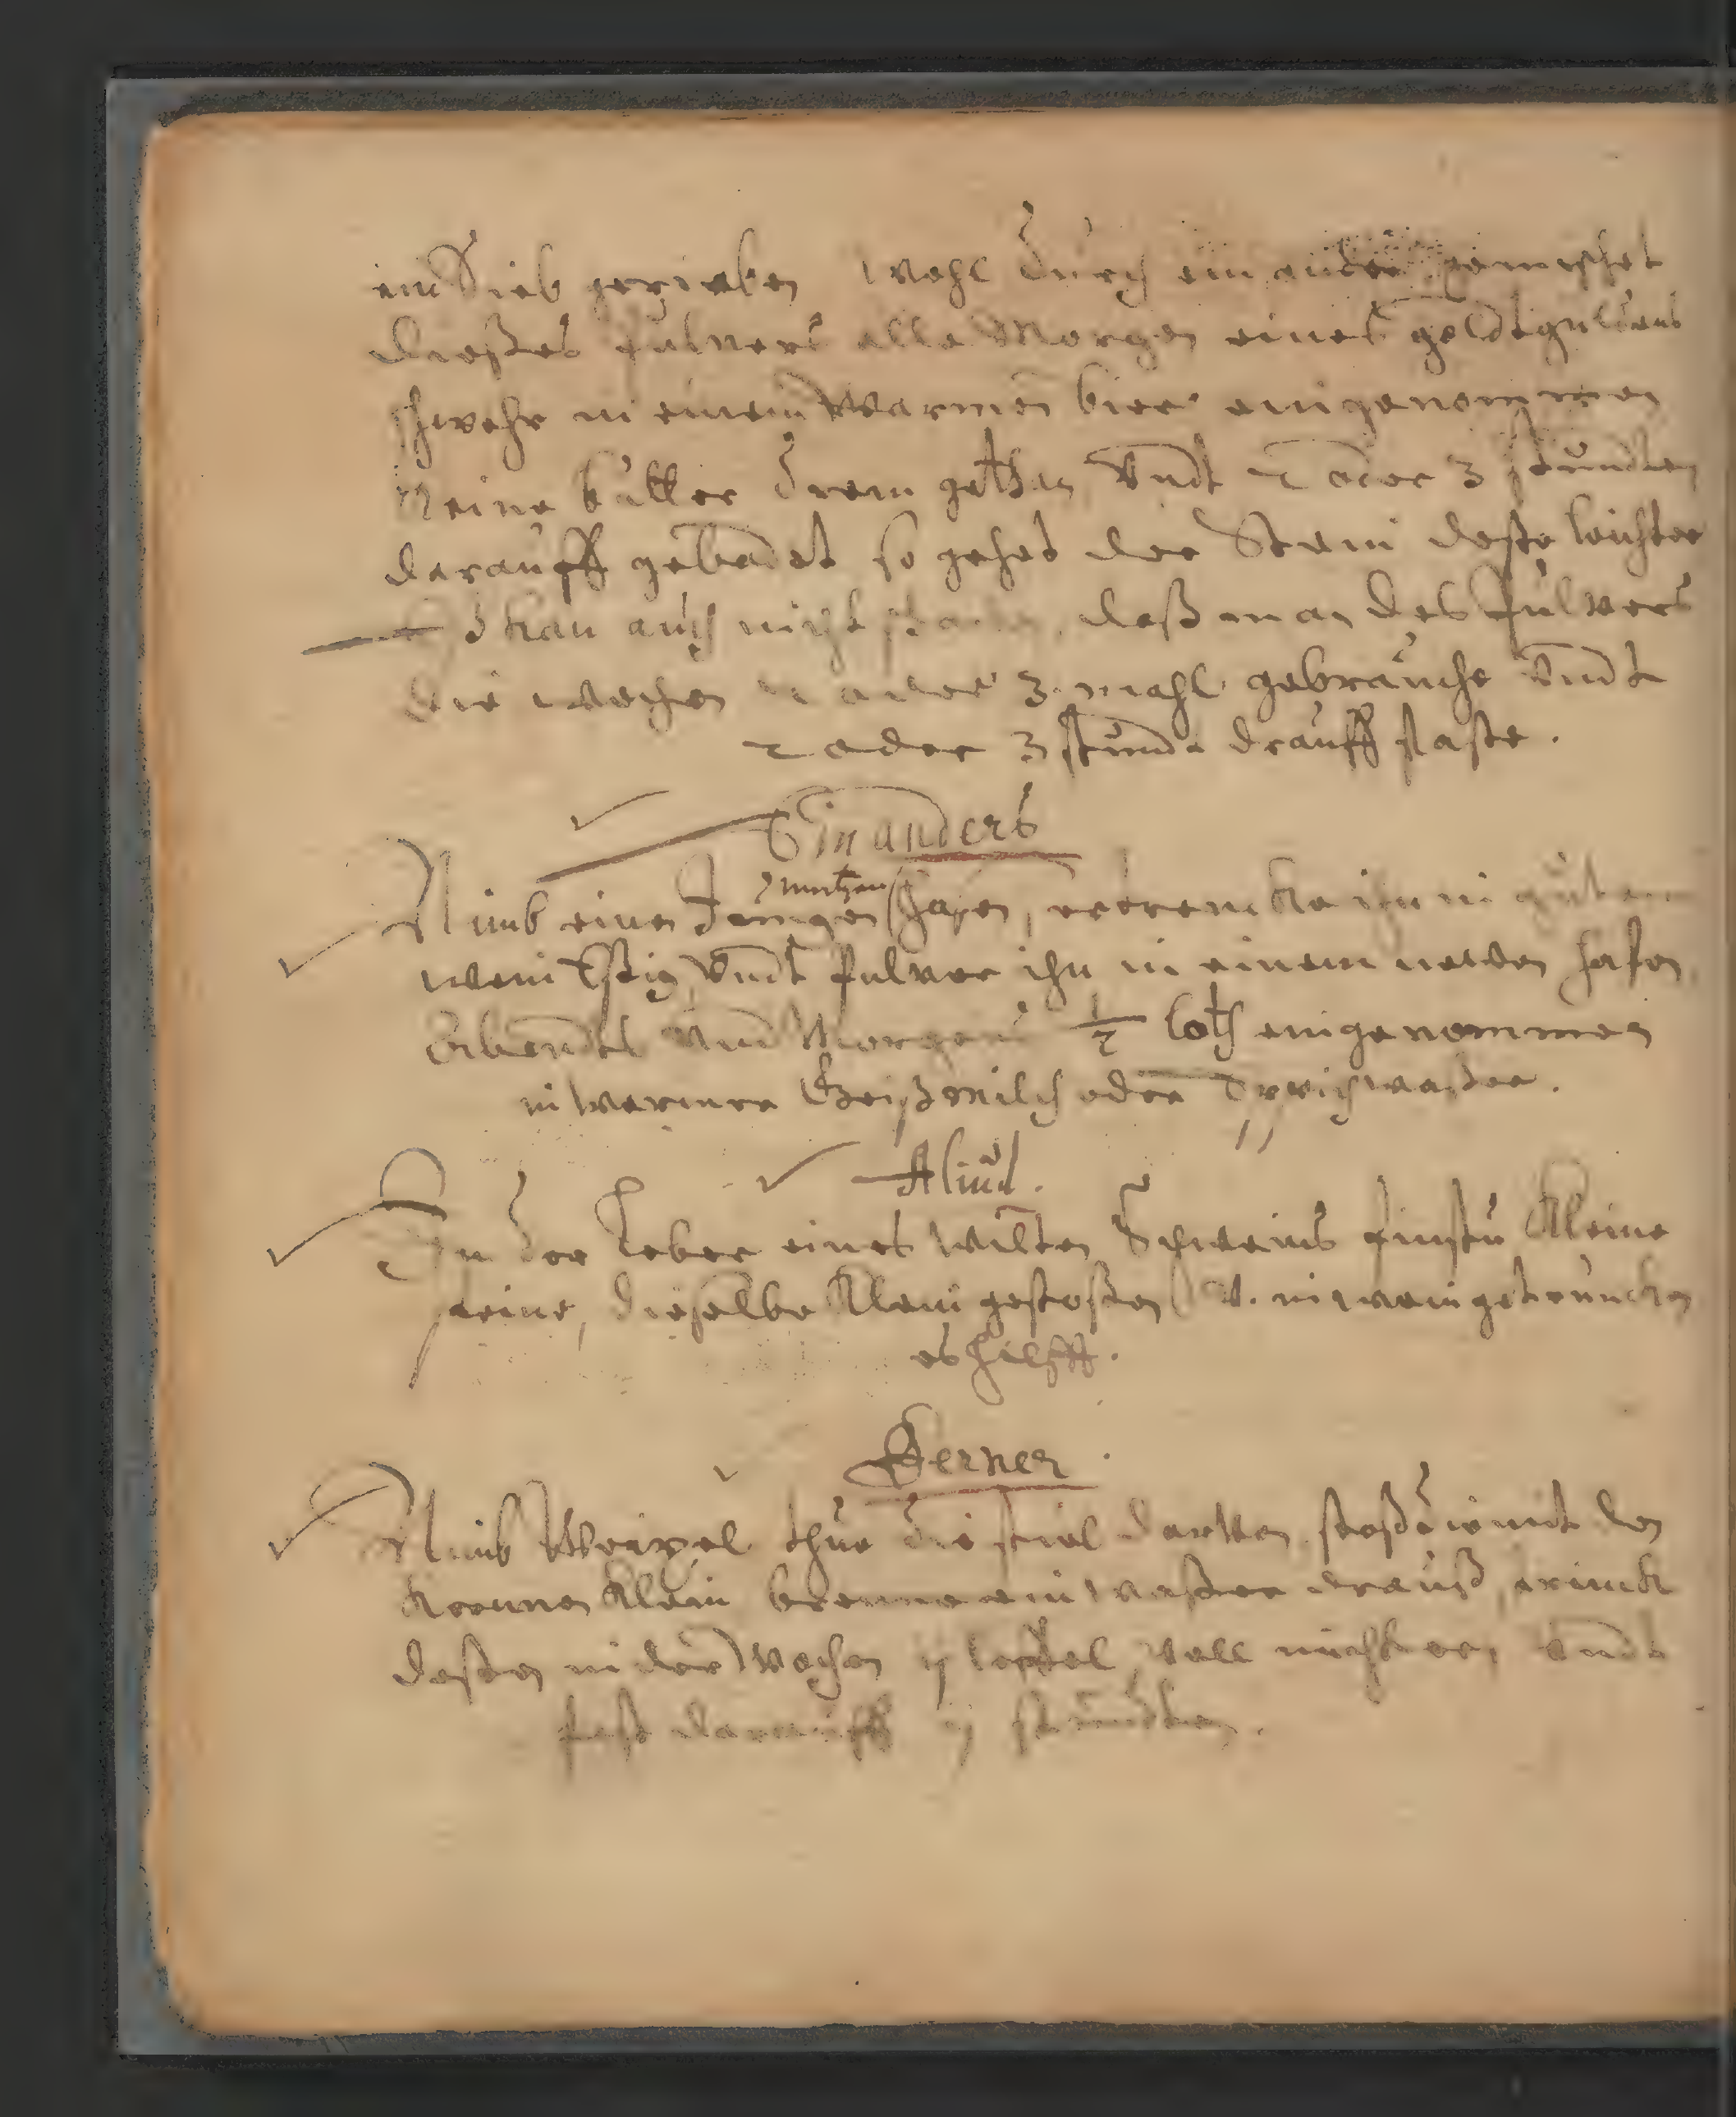 ein Sieb gerieben Wohl durch ein ander gemischet
dießes pulvers alle Morgen eines goldtguldens
schwehr in einem warmen bier eingenommen
Keine butter drein gethan Vndt 2 oder 3 stunden
darauff gebadet so gehet der Stein deste leichter
kan auch nicht daß man des pulvers
die wochen 2 oder 3 mahl gebrauche Vndt
2 oder 3 stunde drauff faste.
Ein anders
Nimb einen Jungen Hasen, ertrencke ihn in gutem
wein Essig Vndt pulver ihn in einem newen hafen
Abendts Vnd Morgens ½ loth eingenommen
in warmer Geißmilch oder waßer.
Aliud.
In der Leber eines Wilden Schweins finstu Kleine
steine, dieselbe Klein gestoßen V. in wein getruncken
es hilfft.
Ferner
Nimb thue die stiel darvon stoße sie mit den
Kernen Klein brenne ein waßer drauß, trinck
deßen in der Wochen ij loffel voll nüchtern Vndt
fast darauff ij stundten.